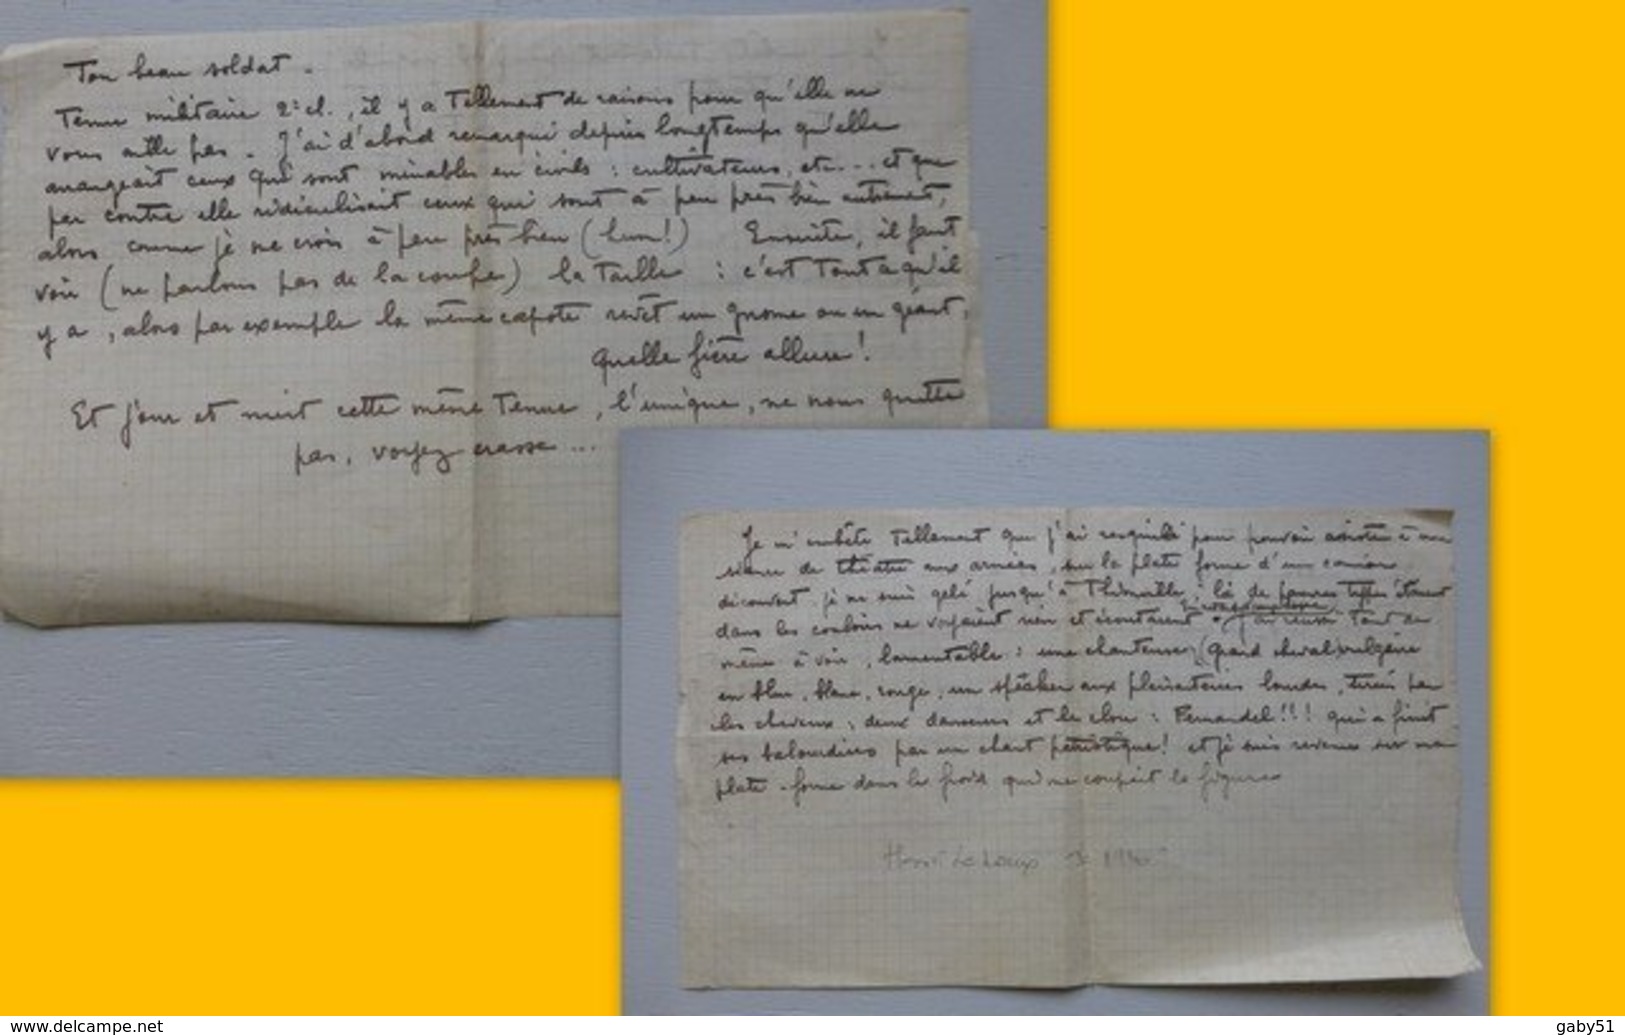 Ton beau soldat.
Tenue militaire 2e cl., il y a tellement de raisons pour qu'elle ne
vous aille pas. J'ai d'abord remarqué depuis longtemps qu'elle
arrangeait ceux qui sont minables en civils : cultivateurs, etc... et que
par contre elle ridiculisait ceux qui sont à peu près bien autrement,
alors comme je me crois à peu près bien (hum!) Ensuite, il faut
voir (ne parlons pas de la coupe) la taille : c'est tout a qu'il
y a, alors par exemple la même capote revêt un gnome ou un géant,
quelle fière allure!
Et jour et nuit cette même tenue, l'unique, ne nous quitte
pas, voyez crasse...
Je m'embête tellement que j'ai resquillé pour pouvoir assister à une
séance de théatre aux armées, sur la plate forme d'un camion
découvert je me suis gelé jusqu'à Thionville, là de pauvres types étant
dans les couloirs ne voyaient rien et écoutaient. J'ai réussi tout de
même à voir, lamentable : une chanteuse (grand cheval) vulgaire
en bleu, blanc, rouge, un spéaker aux plaisanteries lourdes, tirées par
les cheveux, deux danseurs et le clou : Fernandel!!! qui a finit
ses balourdises par un chant patriotique! et je suis revenu sur ma
plate-forme dans le froid qui me coupait la figure
www.delcampe.net
gaby51